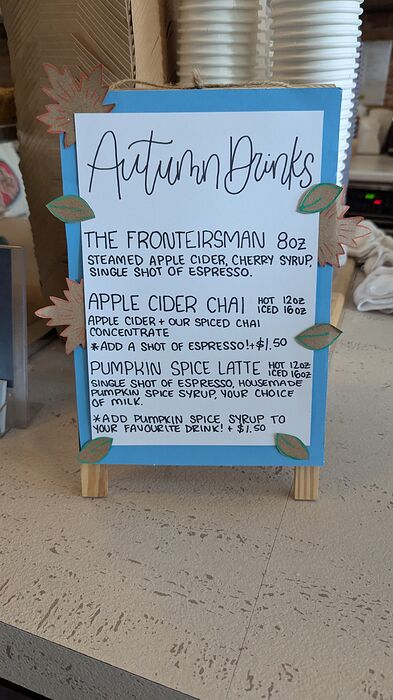 Autumn Drinks
THE FRONTEIRSMAN 8oz
STEAMED APPLE CIDER, CHERRY SYRUP,
SINGLE SHOT OF ESPRESSO.
APPLE CIDER CHAI HOT 12oz
ICED 16oz
APPLE CIDER + OUR SPICED CHAI
CONCENTRATE
*ADD A SHOT OF ESPRESSO!+$1.50
PUMPKIN SPICE LATTE HOT 12oz
ICED 16oz
SINGLE SHOT OF ESPRESSO, HOUSEMADE
PUMPKIN SPICE SYRUP, YOUR CHOICE
OF MILK.
*ADD PUMPKIN SPICE SYRUP TO
YOUR FAVOURITE DRINK! + $1.50